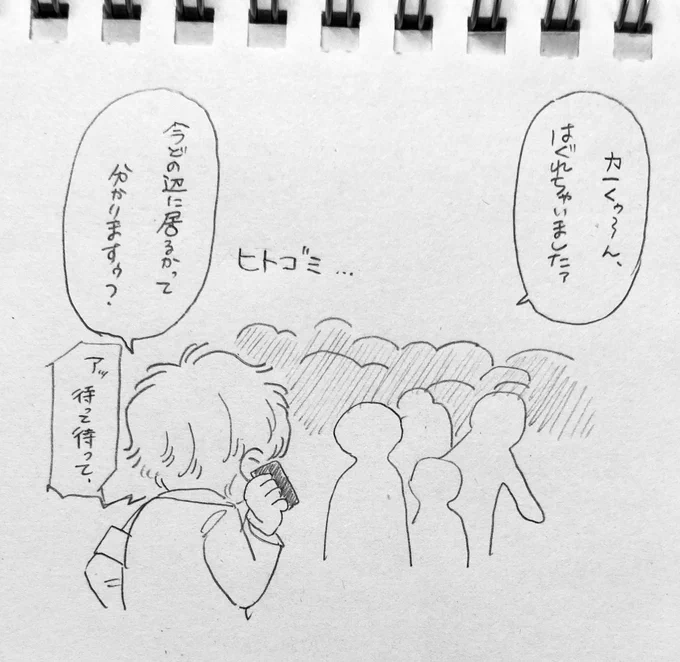 カーくゥ〜ん、
はぐれちゃいました?
ヒトゴミ…
今どの辺に居るかって
分かりますゥ?
アッ待って待って、